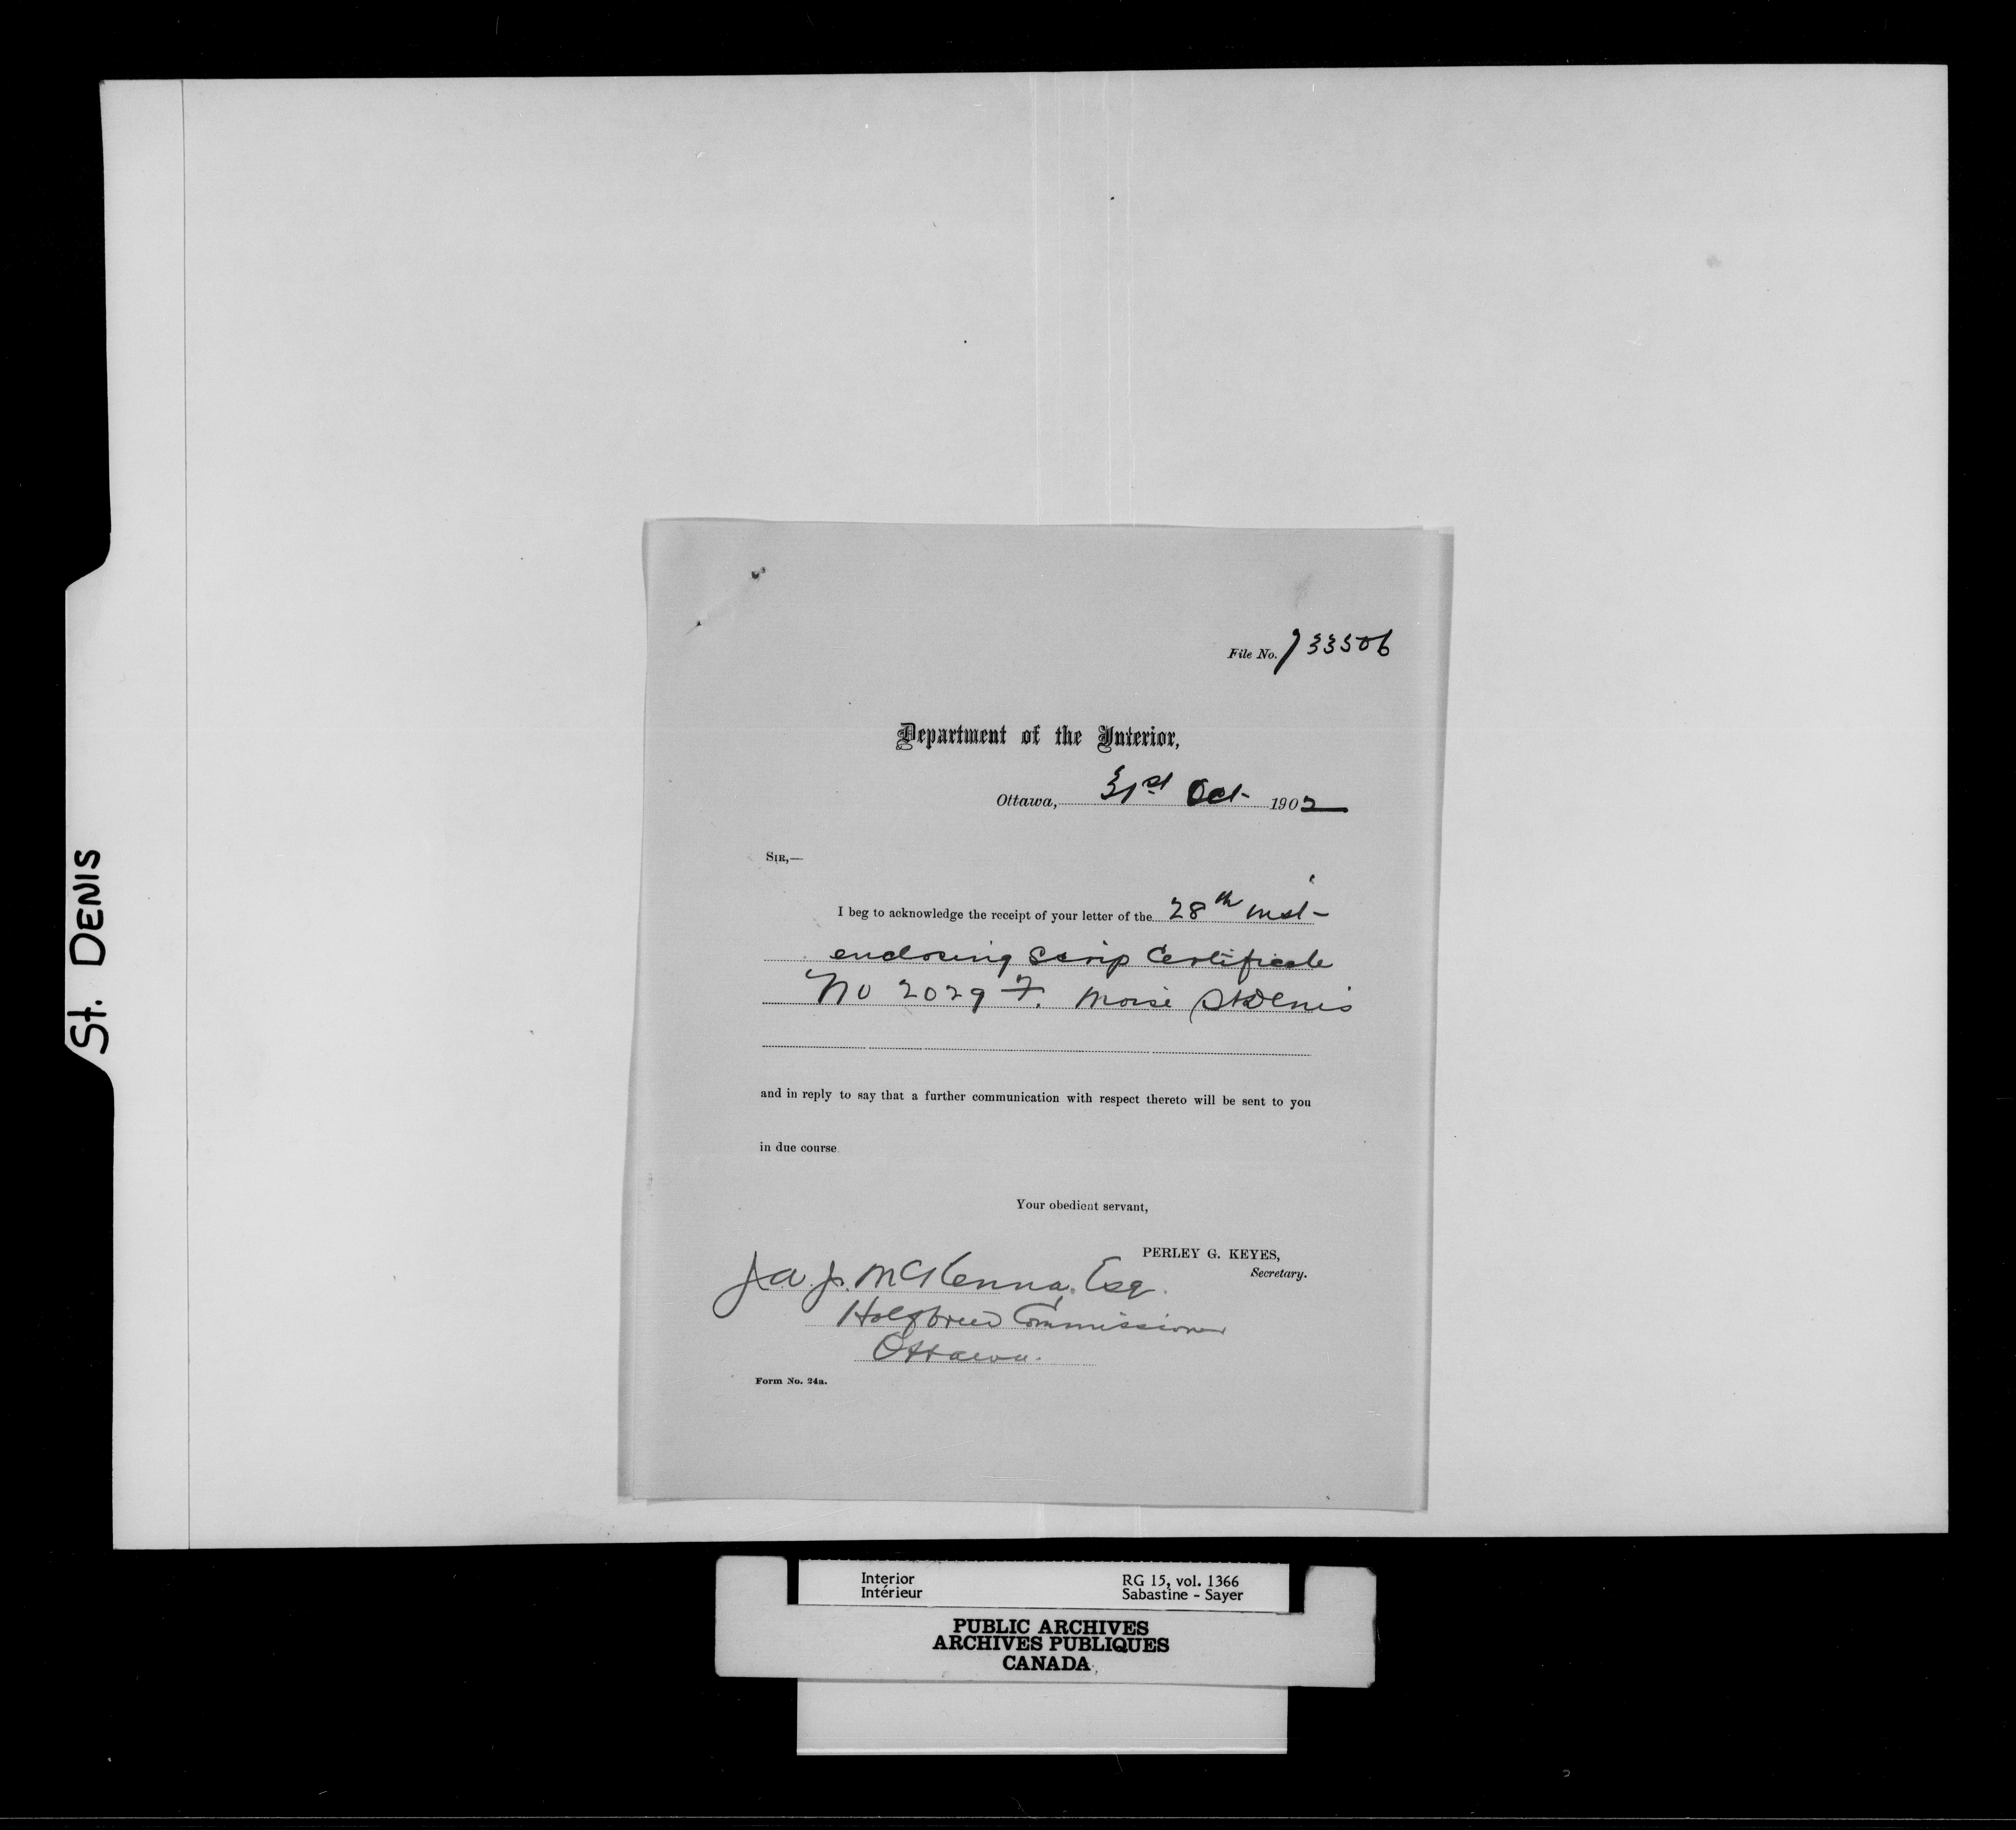 St. DENIS
File No. 733506
Department of the Interior,
Ottawa, 31st Oct 1902
SIR,—
I beg to acknowledge the receipt of your letter of the 28th inst-
enclosing Scrip Certificate
No 2029 F. Moise StDenis
and in reply to say that a further communication with respect thereto will be sent to you
in due course
Your obedient servant,
PERLEY G. KEYES,
Secretary.
J.A.J. McKenna, Esq.
Halfbreed Commissioner
Ottawa.
Form No. 24a.
Interior RG 15, vol. 1366
Intérieur Sabastine - Sayer
PUBLIC ARCHIVES
ARCHIVES PUBLIQUES
CANADA